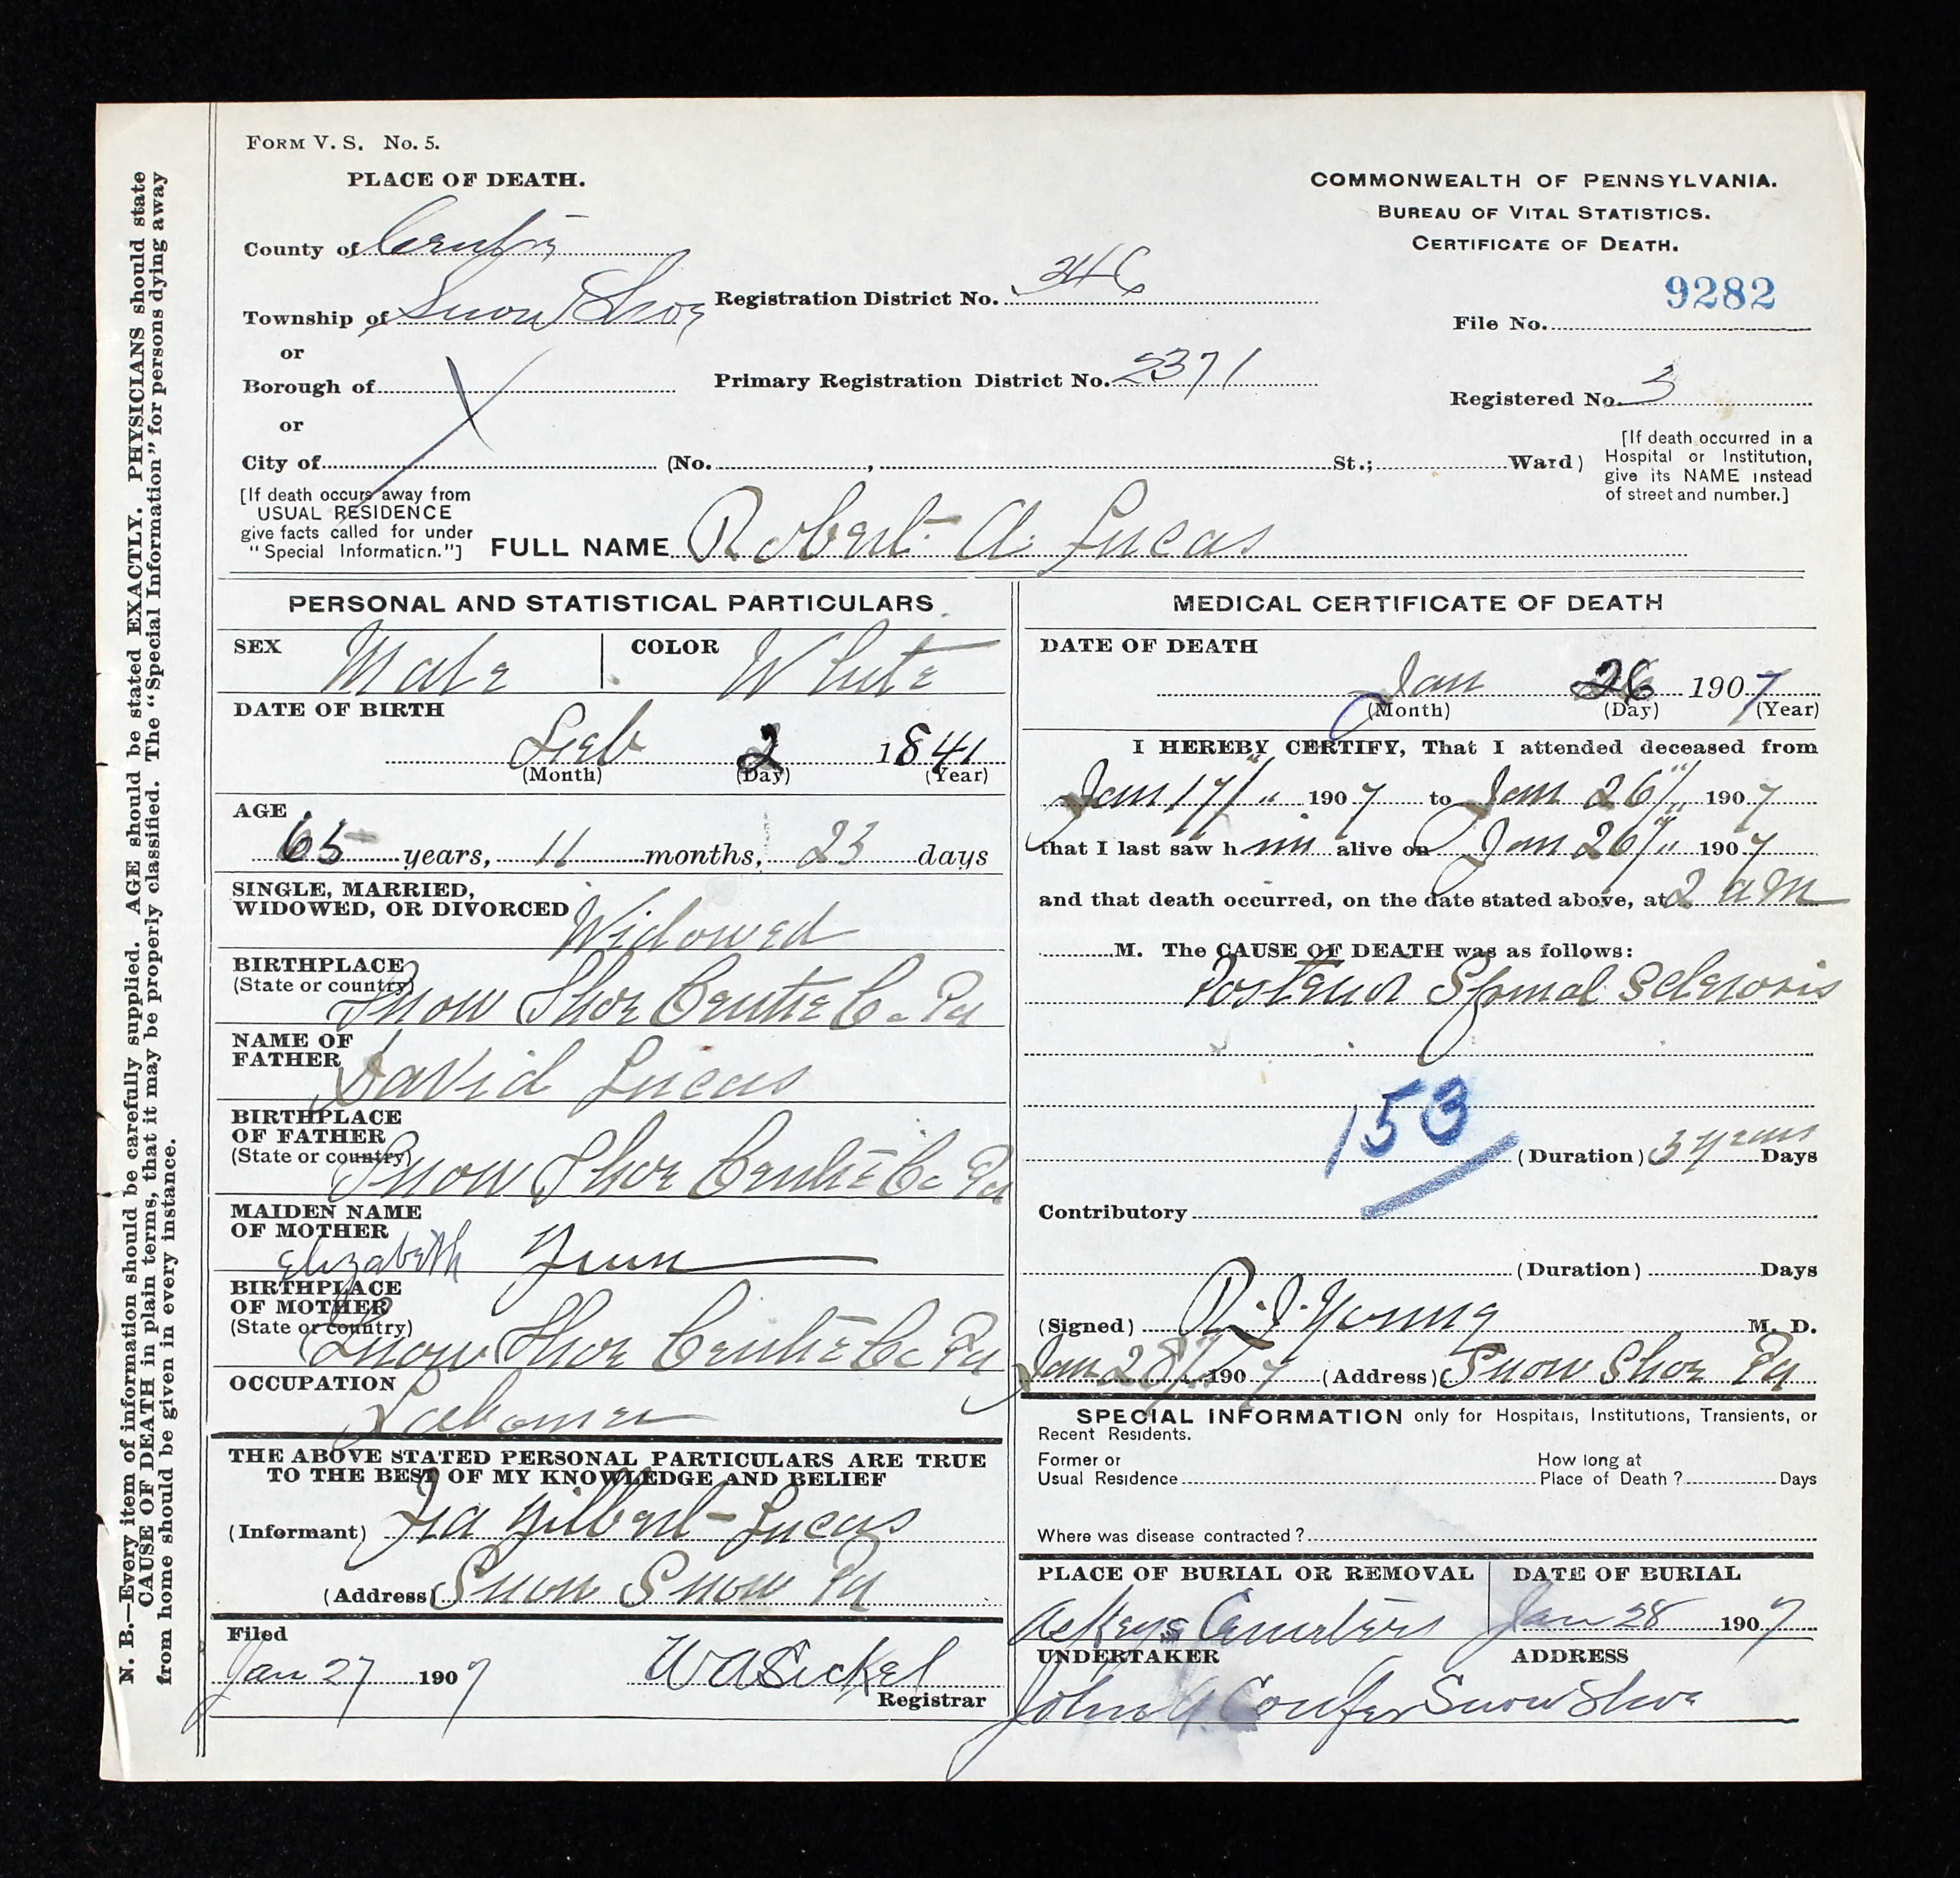 FORM V. S. No. 5.
PLACE OF DEATH.
COMMONWEALTH OF PENNSYLVANIA.
BUREAU OF VITAL STATISTICS.
CERTIFICATE OF DEATH.
County of Centre
Township of Snow Shoe
Registration District No. 346
9282
File No.
or
Borough of
Primary Registration District No. 2371
Registered No. 3
or
City of (No. , St.; Ward)
[If death occurred in a
Hospital or Institution,
give its NAME instead
of street and number.]
[If death occurs away from
USUAL RESIDENCE
give facts called for under
"Special Information."]
FULL NAME Robert A. Lucas
PERSONAL AND STATISTICAL PARTICULARS
SEX Male
COLOR White
DATE OF BIRTH
Feb 2 1841
(Month) (Day) (Year)
AGE
65 years, 11 months, 23 days
SINGLE, MARRIED,
WIDOWED, OR DIVORCED Widowed
BIRTHPLACE
(State or country)
Snow Shoe Centre Co Pa
NAME OF
FATHER David Lucas
BIRTHPLACE
OF FATHER
(State or country)
Snow Shoe Centre Co Pa
MAIDEN NAME
OF MOTHER
Elizabeth
BIRTHPLACE
OF MOTHER
(State or country)
Snow Shoe Centre Co Pa
OCCUPATION
Laborer
THE ABOVE STATED PERSONAL PARTICULARS ARE TRUE
TO THE BEST OF MY KNOWLEDGE AND BELIEF
(Informant) Ira Gilbert Lucas
(Address) Snow Snow Pa
Filed
Jan 27 1907 W A Sickel
Registrar
MEDICAL CERTIFICATE OF DEATH
DATE OF DEATH
Jan 26 1907
(Month) (Day) (Year)
I HEREBY CERTIFY, That I attended deceased from
Jan 17/" 1907 to Jan 26/" 1907
that I last saw him alive on Jan 26/" 1907
and that death occurred, on the date stated above, at 2 am
M. The CAUSE OF DEATH was as follows:
Posterior Spinal Sclerosis
153
(Duration) 3 years Days
Contributory
(Duration) Days
(Signed) R. J. Young M. D.
Jan 28/" 1907 (Address) Snow Shoe Pa
SPECIAL INFORMATION only for Hospitals, Institutions, Transients, or
Recent Residents.
Former or
Usual Residence
How long at
Place of Death ? Days
Where was disease contracted ?
PLACE OF BURIAL OR REMOVAL
Askeys Cemetery
DATE OF BURIAL
Jan 28 1907
UNDERTAKER
John G. Confer
ADDRESS
Snow Shoe
N. B.—Every item of information should be carefully supplied. AGE should be stated EXACTLY. PHYSICIANS should state
CAUSE OF DEATH in plain terms, that it may be properly classified. The "Special Information" for persons dying away
from home should be given in every instance.